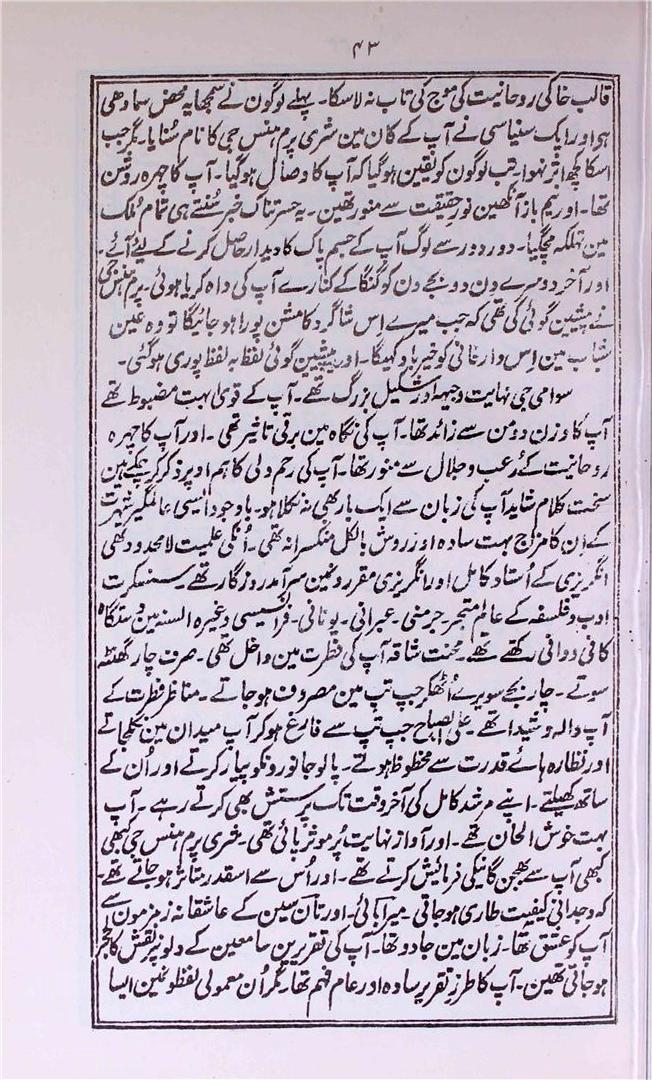 ۴۳
قالب خاکی روحانیت کی موج کی تاب نہ لاسکا۔ پہلے لوگون نے سمجھا یہ محض سمادھی
ہی اور ایک سنیاسی نے آپ کے کان مین شری پرم ہنس جی کا نام سُنایا۔ مگر جب
اسکا کچھ اثر نہوا۔ تب لوگون کو یقین ہوگیا کہ آپ کا وصال ہوگیا۔ آپ کا چہرہ روشن
تھا۔ اور نیم باز آنکھین نور حقیقت سے منور تھین۔ یہ حسرتناک خبر سُنتے ہی تمام مُلک
مین تہلکہ مچگیا۔ دور دور سے لوگ آپ کے جسم پاک کا دیدار حاصل کرنے کے لیئے آئے۔
اور آخر دوسرے دن دو بجے دن کو گنگا کے کنارے آپ کی داہ کریا ہوئی۔ پرم ہنس جی
نے پیشین گوئی کی تھی کہ جب میرے اِس شاگرد کا مشن پورا ہو جائیگا تو وہ عین
شباب مین اِس دار فانی کو خیر باد کہیگا۔ اور یہ پیشین گوئی لفظ بہ لفظ پوری ہوگئی۔
سوامی جی نہایت وجیہہ اور شکیل بزرگ تھے۔ آپ کے قویٰ بہت مضبوط تھے
آپ کا وزن دو من سے زائد تھا۔ آپ کی نگاہ مین برقی تاثیر تھی۔ اور آپ کا چہرہ
روحانیت کے رُعب و جلال سے منور تھا۔ آپ کی رحم دلی کا ہم اوپر ذکر کر چکے ہین
سخت کلام شاید آپ کی زبان سے ایک بار بھی نہ نکلا ہو۔ باوجود ایسی عالمگیر شہرت
کے اِن کا مزاج بہت سادہ اور روش بالکل منکسرانہ تھی۔ اُنکی علمیت لامحدود تھی
انگریزی کے اُستاد کامل اور انگریزی مقررونمین سرآمد روزگار تھے۔ سنسکرت
ادب و فلسفہ کے عالم متبحر۔ جرمنی۔ عبرانی۔ یونانی۔ فرانسیسی وغیرہ السنہ مین دستگاہ
کافی و وافی رکھتے تھے۔ محنت شاقہ آپ کی فطرت مین داخل تھی۔ صرف چار گھنٹہ
سوتے۔ چار بجے سویرے اُٹھکر جپ تپ مین مصروف ہو جاتے۔ مناظر فطرت کے
آپ والہ و شیدا تھے۔ علی الصباح جپ تپ سے فارغ ہو کر آپ میدان مین نکلجاتے
اور نظارہ ہائے قدرت سے محظوظ ہوتے۔ پالو جانورونکو پیار کرتے اور اُن کے
ساتھ کھیلتے۔ اپنے مرشد کامل کی آخر وقت تک پرستش بھی کرتے رہے۔ آپ
بہت خوش الحان تھے۔ اور آواز نہایت پُر موثر پائی تھی۔ شری پرم ہنس جی کبھی
کبھی آپ سے بھجن گانیکی فرمائش کرتے تھے۔ اور اُس سے اسقدر متاثر ہو جاتے تھے۔
کہ وجدانی کیفیت طاری ہو جاتی۔ میرا بائی۔ اور تان سین کے عاشقانہ زمزمون سے
آپ کو عشق تھا۔ زبان مین جادو تھا۔ آپ کی تقریرین سامعین کے دلونپر نقش کالحجر
ہو جاتی تھین۔ آپ کا طرز تقریر سادہ اور عام فہم تھا۔ مگر اُن معمولی لفظونمین ایسا